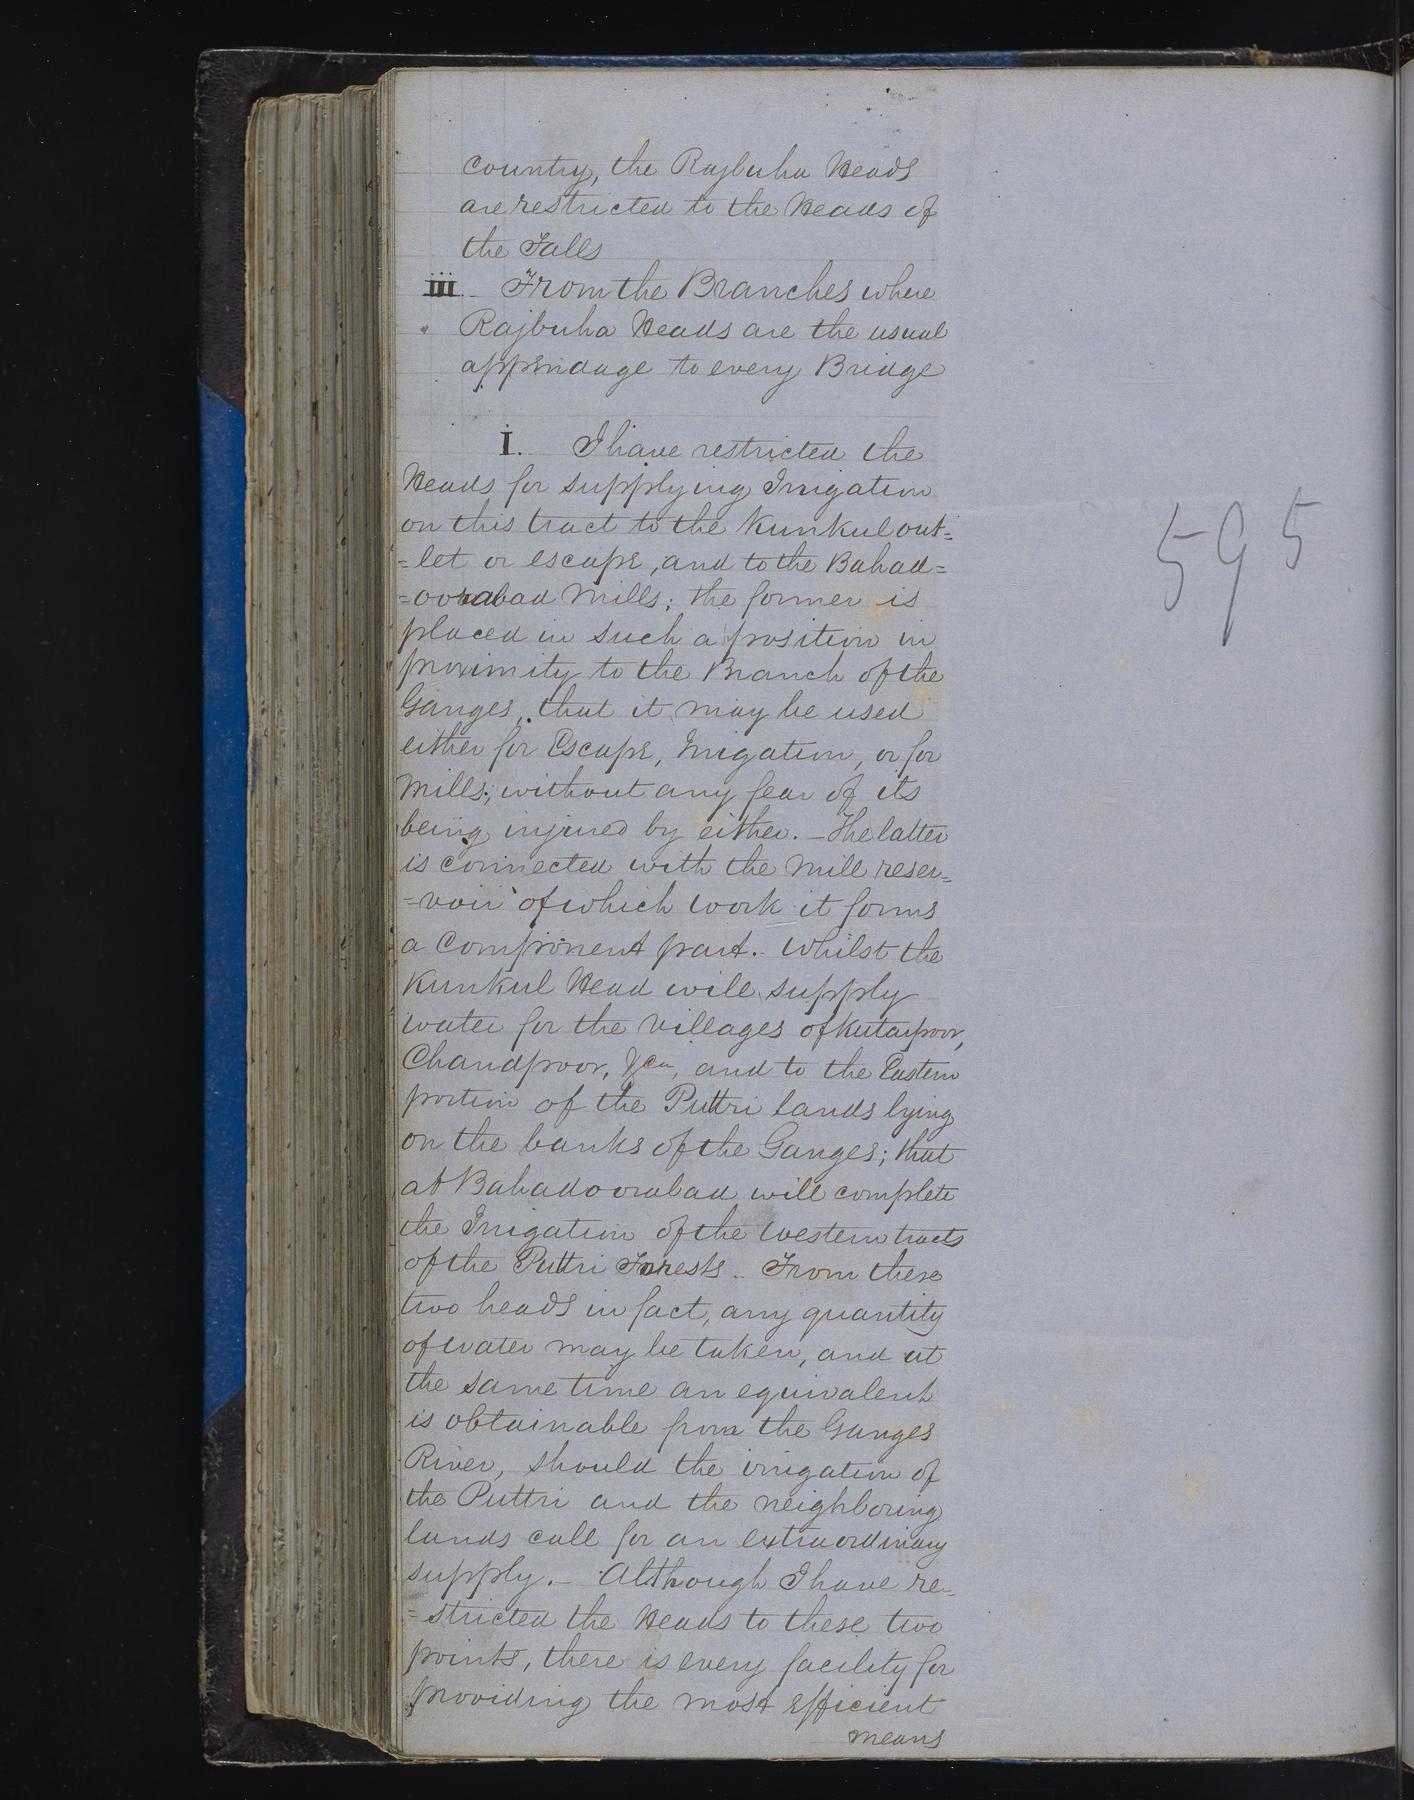 country, the Rajbuha Heads
are restricted to the Heads of
the Falls
iii From the Branches where
Rajbuha Heads are the usual
appendage to every Bridge
I. I have restricted the
Heads for supplying Irrigation
on this tract to the Kunkul out=
=let or escape, and to the Bahad=
=oorabad Mills; the former is
placed in such a position in
proximity to the Branch of the
Ganges, that it may be used
either for Escape, Irrigation, or for
Mills; without any fear of its
being injured by either. – The latter
is connected with the Mill reser=
=voir of which work it forms
a Component part. Whilst the
Kunkul Head will supply
water for the villages of Kutarpoor,
Chandpoor, &ca, and to the Eastern
portion of the Puttri lands lying
on the banks of the Ganges; that
at Bahadoorabad will complete
the Irrigation of the western tracts
of the Puttri Forests. From these
two heads in fact, any quantity
of water may be taken, and at
the same time an equivalent
is obtainable from the Ganges
River, should the irrigation of
the Puttri and the neighboring
lands call for an extraordinary
supply. – Although I have re=
=stricted the Heads to these two
points, there is every facility for
providing the most efficient
means
595